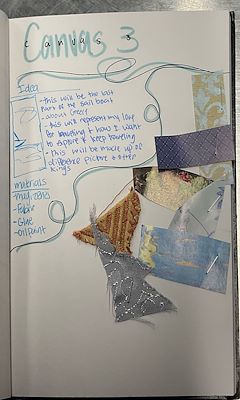 Canvas 3
canvas 3
Idea
- This will be the last
Part of the sail boat
- about Greece
- this will represent my love
for traveling + how I want
to explore + keep traveling
- this will be made up of
different picture + other
things
materials
- magazines
- Fabric
- Glue
- oil paint